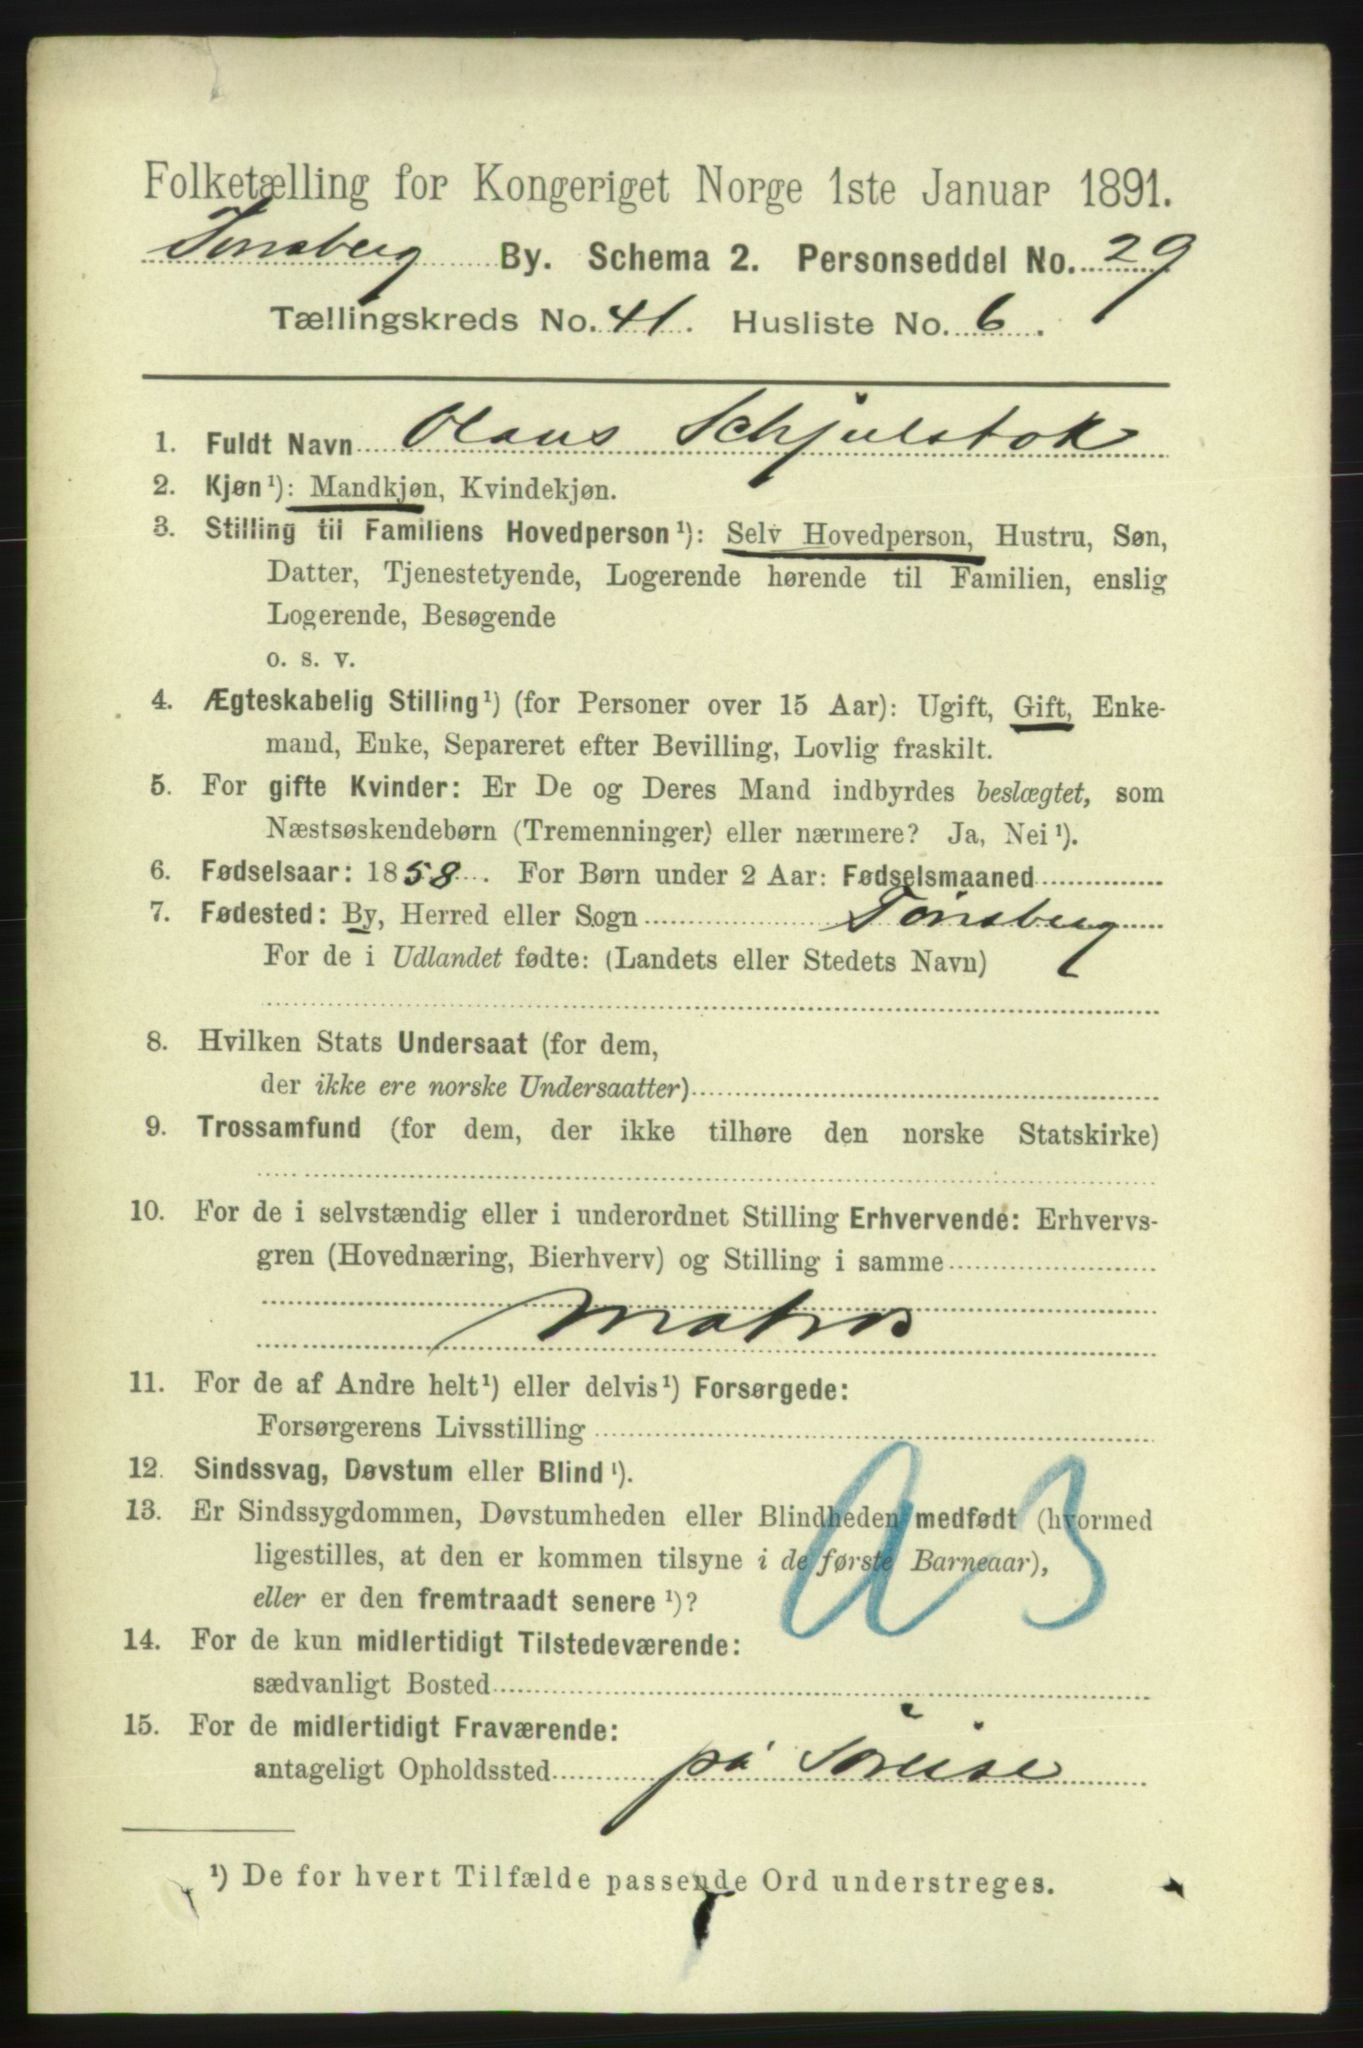 Folketælling for Kongeriget Norge 1ste Januar 1891.
Tønsberg By. Schema 2. Personseddel No. 29
Tællingskreds No. 41. Husliste No. 6.
1. Fuldt Navn Olaus Schjulstok
2. Kjøn¹): Mandkjøn, Kvindekjøn.
3. Stilling til Familiens Hovedperson¹): Selv Hovedperson, Hustru, Søn,
Datter, Tjenestetyende, Logerende hørende til Familien, enslig
Logerende, Besøgende
o. s. v.
4. Ægteskabelig Stilling¹) (for Personer over 15 Aar): Ugift, Gift, Enke-
mand, Enke, Separeret efter Bevilling, Lovlig fraskilt.
5. For gifte Kvinder: Er De og Deres Mand indbyrdes beslægtet, som
Næstsøskendebørn (Tremenninger) eller nærmere? Ja, Nei¹).
6. Fødselsaar: 1858. For Børn under 2 Aar: Fødselsmaaned
7. Fødested: By, Herred eller Sogn Tønsberg
For de i Udlandet fødte: (Landets eller Stedets Navn)
8. Hvilken Stats Undersaat (for dem,
der ikke ere norske Undersaatter)
9. Trossamfund (for dem, der ikke tilhøre den norske Statskirke)
10. For de i selvstændig eller i underordnet Stilling Erhvervende: Erhvervs-
gren (Hovednæring, Bierhverv) og Stilling i samme
Matros
11. For de af Andre helt¹) eller delvis¹) Forsørgede:
Forsørgerens Livsstilling
12. Sindssvag, Døvstum eller Blind¹).
13. Er Sindssygdommen, Døvstumheden eller Blindheden medfødt (hvormed
ligestilles, at den er kommen tilsyne i de første Barneaar),
eller er den fremtraadt senere¹)?
14. For de kun midlertidigt Tilstedeværende:
sædvanligt Bosted
15. For de midlertidigt Fraværende:
antageligt Opholdssted på Søreise
¹) De for hvert Tilfælde passende Ord understreges.